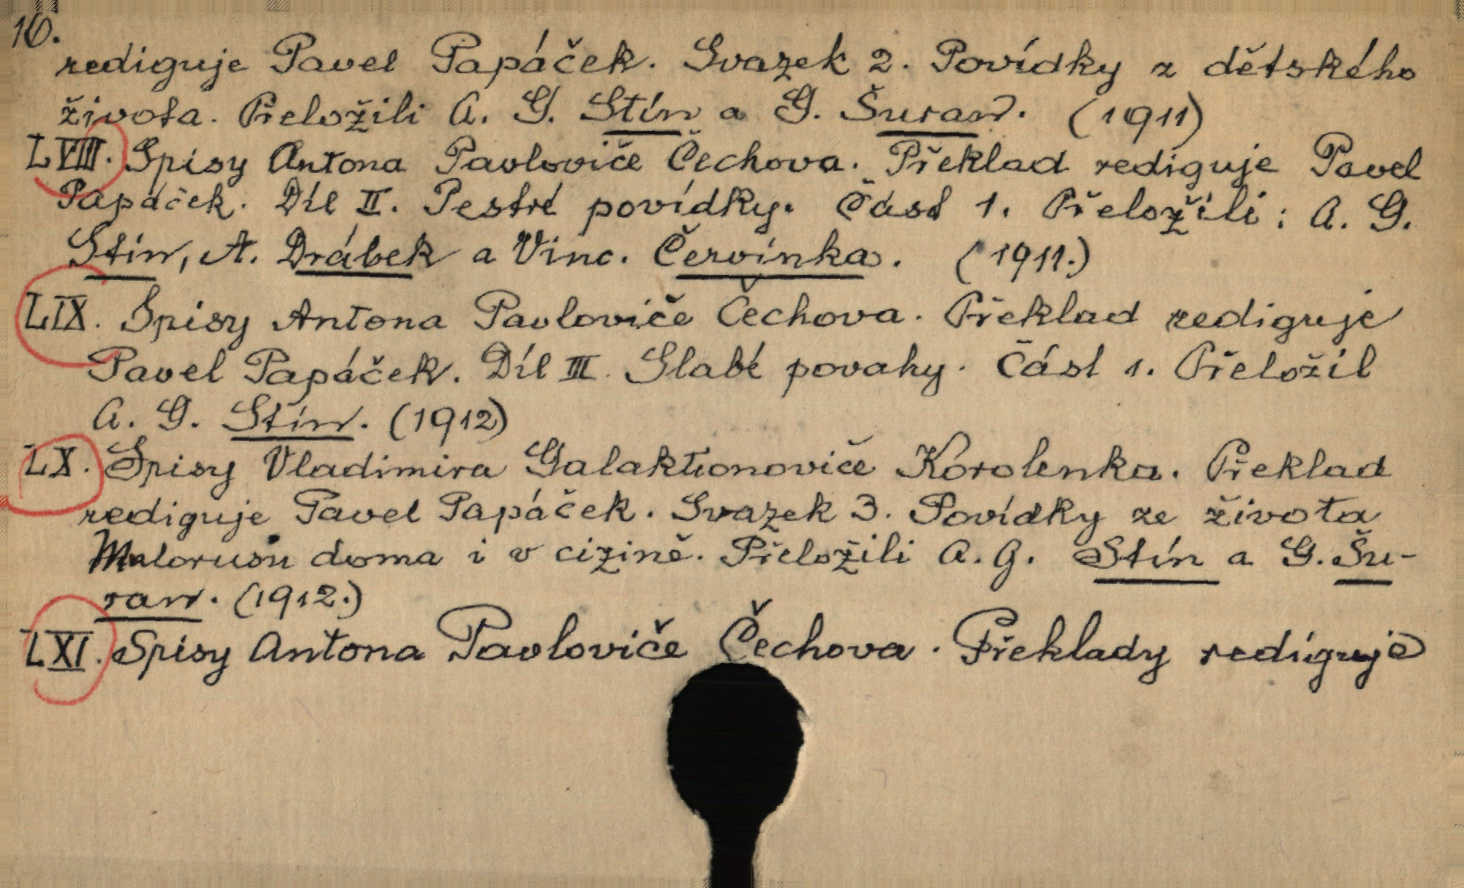 16.
rediguje Pavel Papáček. Svazek 2. Povídky z dětského
života. Přeložili A. G. Stín a G. Šuran. (1911)
LVIII. Spisy Antona Pavloviče Čechova. Překlad rediguje Pavel
Papáček. Díl II. Pestré povídky. Část 1. Přeložili: A. G.
Stín, A. Drábek a Vinc. Červinka. (1911.)
LIX. Spisy Antona Pavloviče Čechova. Překlad rediguje
Pavel Papáček. Díl III. Slabé povahy. Část 1. Přeložil
A. G. Stín. (1912)
LX. Spisy Vladimira Galaktionoviče Korolenka. Překlad
rediguje Pavel Papáček. Svazek 3. Povídky ze života
Malorusů doma i v cizině. Přeložili A. G. Stín a G. Šu-
ran. (1912.)
LXI. Spisy Antona Pavloviče Čechova. Překlady rediguje